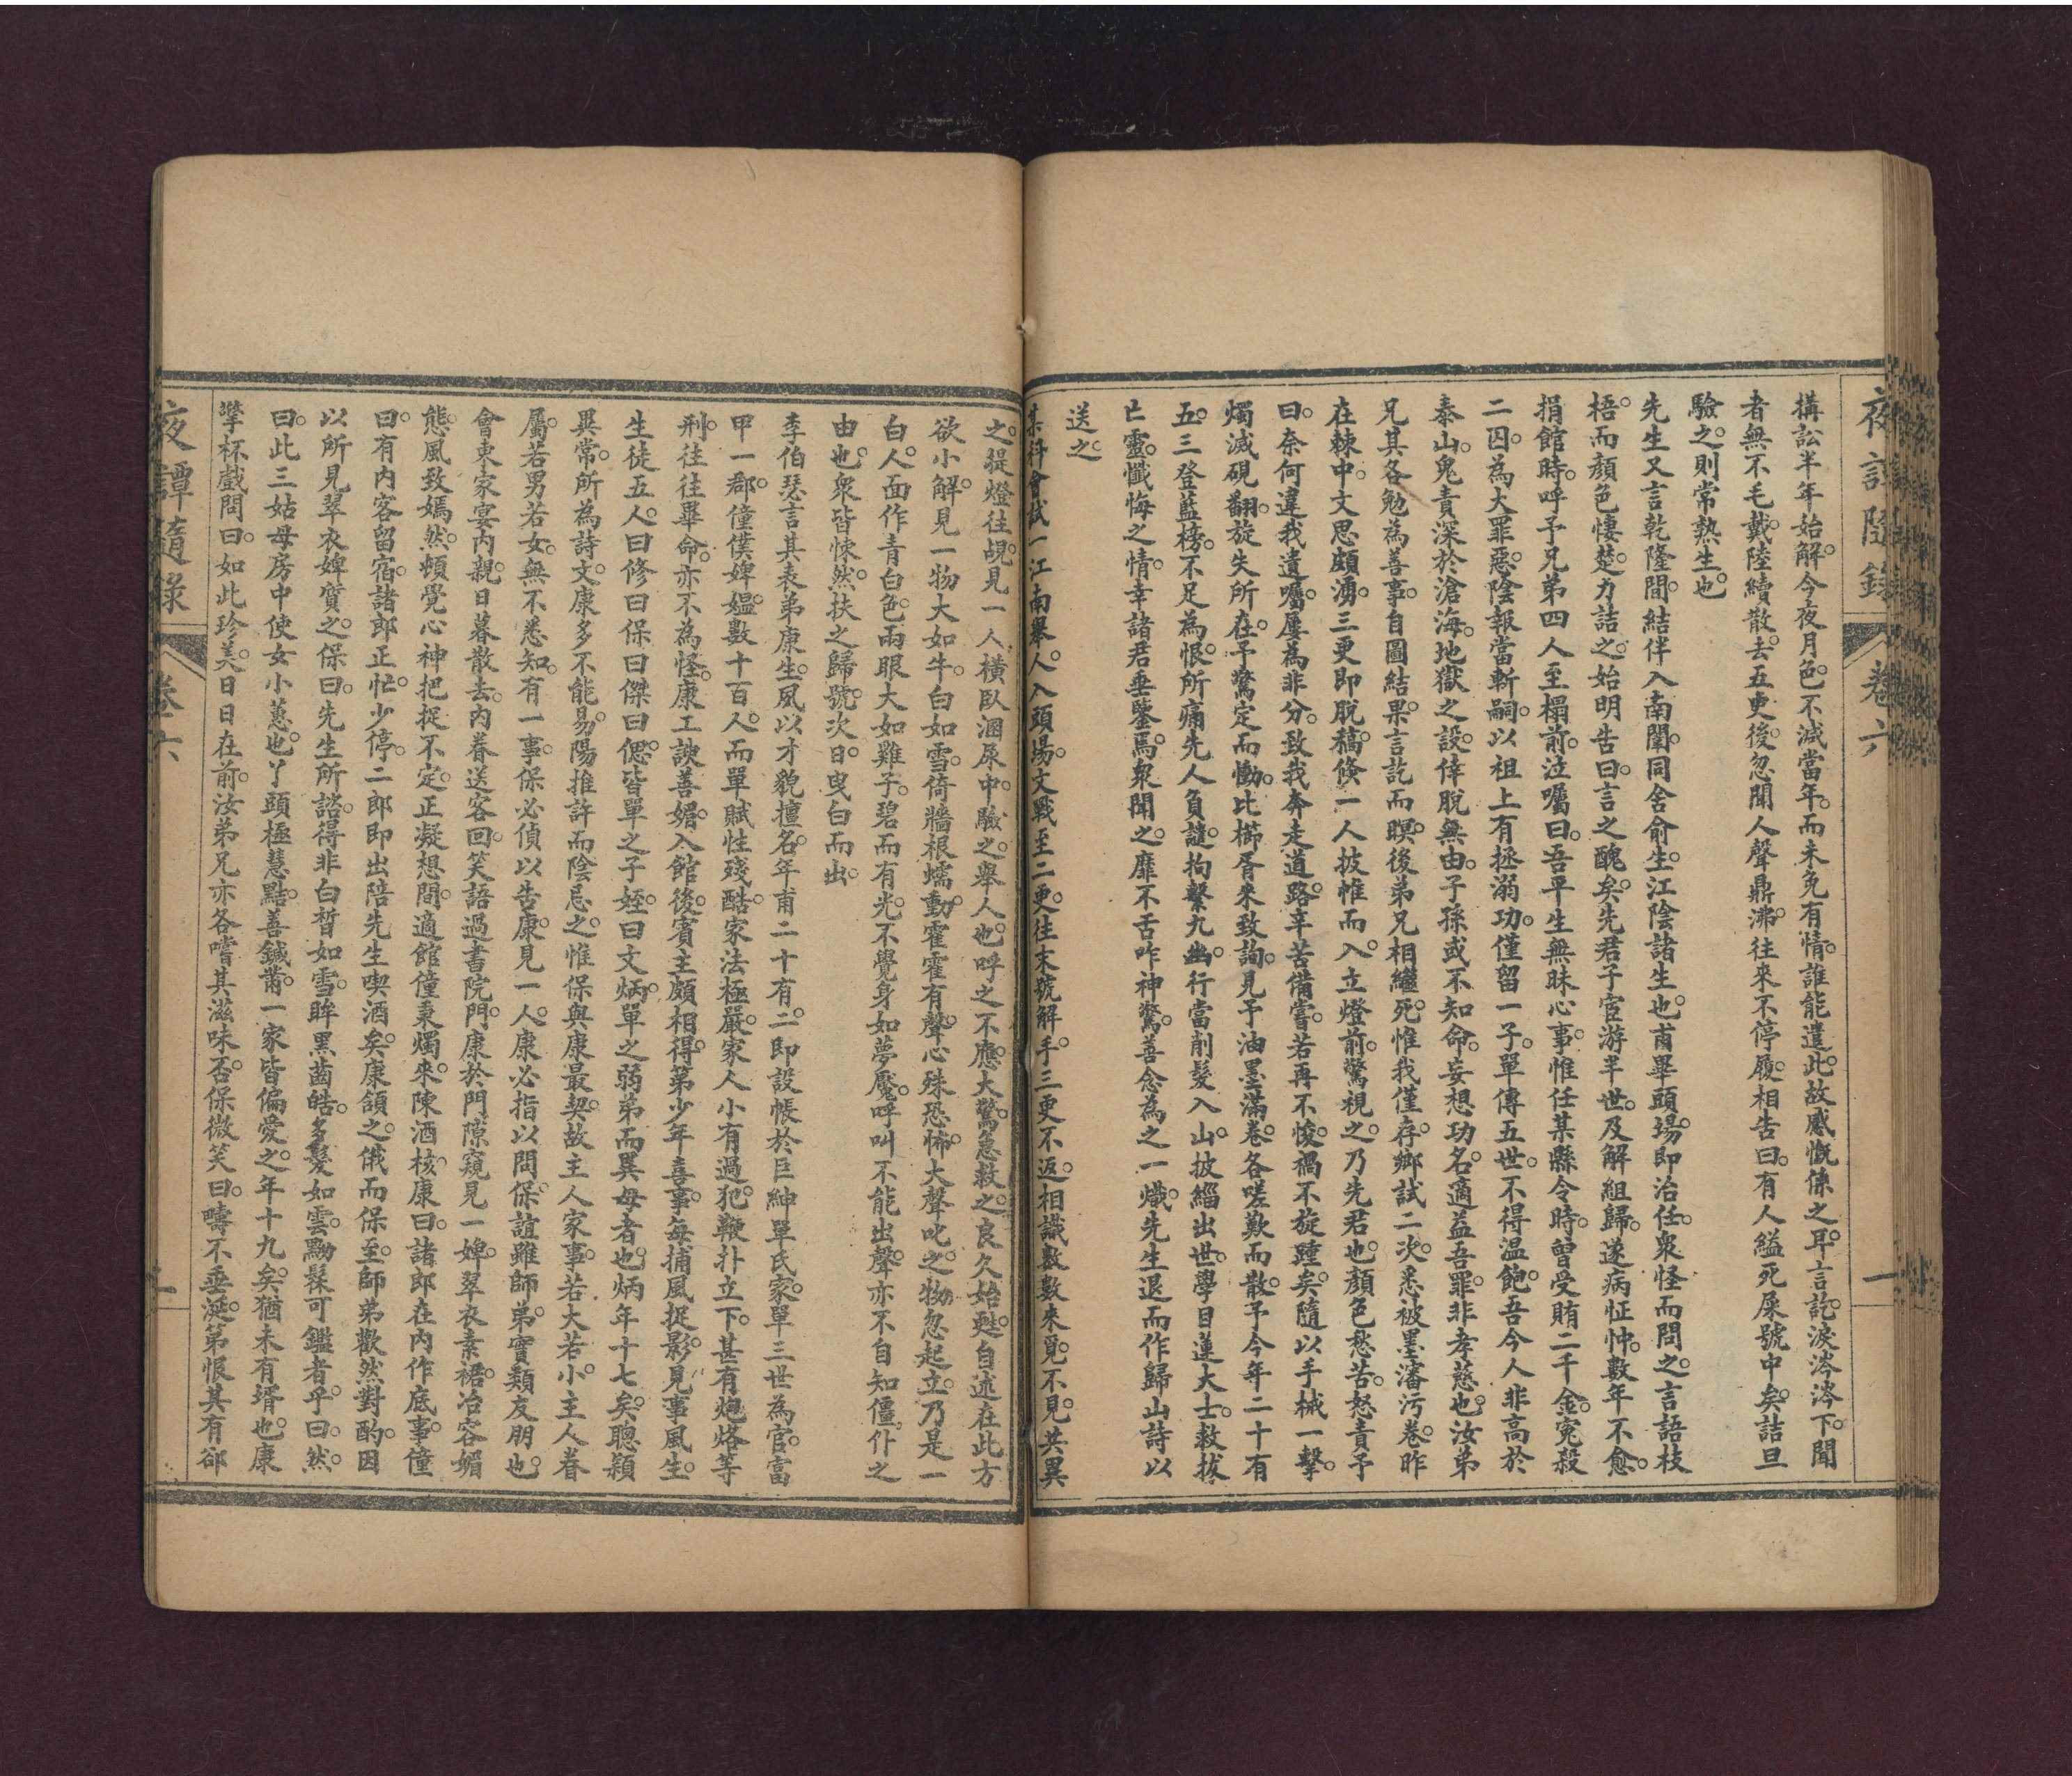 夜譚隨錄 卷六 一
構訟半年始解。今夜月色。不減當年。而未免有情。誰能遣此。故感慨係之。耳言訖。淚涔涔下。聞
者無不毛戴。陸續散去。五更後。忽聞人聲鼎沸。往來不停履。相告曰。有人縊死屎號中矣。詰旦
驗之。則常熟生也。
先生又言乾隆間。結伴入南闈。同舍俞生。江陰諸生也。甫畢頭場。即治任。衆怪而問之。言語枝
梧。而顏色悽楚。力詰之。始明告曰。言之醜矣。先君子宦游半世。及解組歸。遂病怔忡。數年不愈。
捐館時。呼予兄弟四人至榻前。泣囑曰。吾平生無昧心事。惟任某縣令時。曾受賄二千金。寃殺
二囚。為大罪惡。陰報當斬嗣。以祖上有拯溺功。僅留一子。單傳五世。不得温飽。吾今人非高於
泰山。鬼責深於滄海。地獄之設。倖脫無由。子孫或不知命。妄想功名。適益吾罪。非孝慈也。汝弟
兄其各勉為善事。自圖結果。言訖而暝。後弟兄相繼死。惟我僅存。鄉試二次。悉被墨瀋污卷。昨
在棘中。文思頗湧。三更即脫稿。倏一人披帷而入。立燈前。驚視之。乃先君也。顏色愁苦。怒責予
曰。奈何違我遺囑。屢為非分。致我奔走道路。辛苦備嘗。若再不悛。禍不旋踵矣。隨以手械一擊。
燭滅硯翻。旋失所在。予驚定而慟。比櫛胥來致詢。見予油墨滿卷。各嗟歎而散。予今年二十有
五。三登藍榜。不足為恨。所痛先人負諐。拘繫九幽。行當削髮入山。披緇出世。學目蓮大士。救拔
亡靈。懺悔之情。幸諸君垂鑒焉。衆聞之。靡不舌咋神驚。善念為之一熾。先生退而作歸山詩以
送之。
某科會試。一江南舉人。入頭場。文戰至二更。往末號解手。三更不返。相識數數來覓。不見。共異
之。提燈往覘。見一人橫臥溷尿中。驗之。舉人也。呼之不應。大驚急救之。良久始甦。自述在此方
欲小解。見一物大如牛。白如雪。倚牆根蠕動。霍霍有聲。心殊恐怖。大聲叱之。物忽起立。乃是一
白。人面作青白色。兩眼大如雞子。碧而有光。不覺身如夢魘。呼叫不能出聲。亦不自知僵仆之
由也。衆皆悚然。扶之歸號。次日。曳白而出。
李伯瑟言其表弟康生。夙以才貌擅名。年甫二十有二。即設帳於巨紳單氏家。單三世為官。富
甲一郡。僮僕婢媼數十百人。而單賦性殘酷。家法極嚴。家人小有過犯。鞭扑立下。甚有炮烙等
刑。往往畢命。亦不為怪。康工諛善媚。入館後。賓主頗相得。第少年喜事。每捕風捉影。見事風生。
生徒五人。曰修曰保曰傑曰偲。皆單之子姪。曰文炳。單之弱弟而異母者也。炳年十七矣。聰穎
異常。所為詩文。康多不能易。陽推許而陰忌之。惟保與康最契。故主人家事。若大若小。主人眷
屬。若男若女。無不悉知。有一事。保必偵以告康。見一人。康必指以問保。誼雖師弟。實類友朋也。
會東家宴內親。日暮散去。內眷送客回。笑語過書院門。康於門隙窺見一婢。翠衣素裙。冶容媚
態。風致嫣然。頓覺心神把捉不定。正凝想間。適館僮秉燭來。陳酒核。康曰。諸郎在內作底事。僮
曰。有內客留宿。諸郎正忙。少停。二郎即出陪先生喫酒矣。康頷之。俄而保至。師弟歡然對酌。因
以所見翠衣婢質之。保曰。先生所諮。得非白皙如雪。眸黑齒皓。多髮如雲。黝鬒可鑑者乎。曰。然。
曰。此三姑母房中使女小蕙也。丫頭極慧黠。善鍼黹。一家皆偏愛之。年十九矣。猶未有壻也。康
擎杯戲問曰。如此珍美。日日在前。汝弟兄亦各嚐其滋味否。保微笑曰。疇不垂涎。第恨其有郤
夜譚隨錄 卷六 二